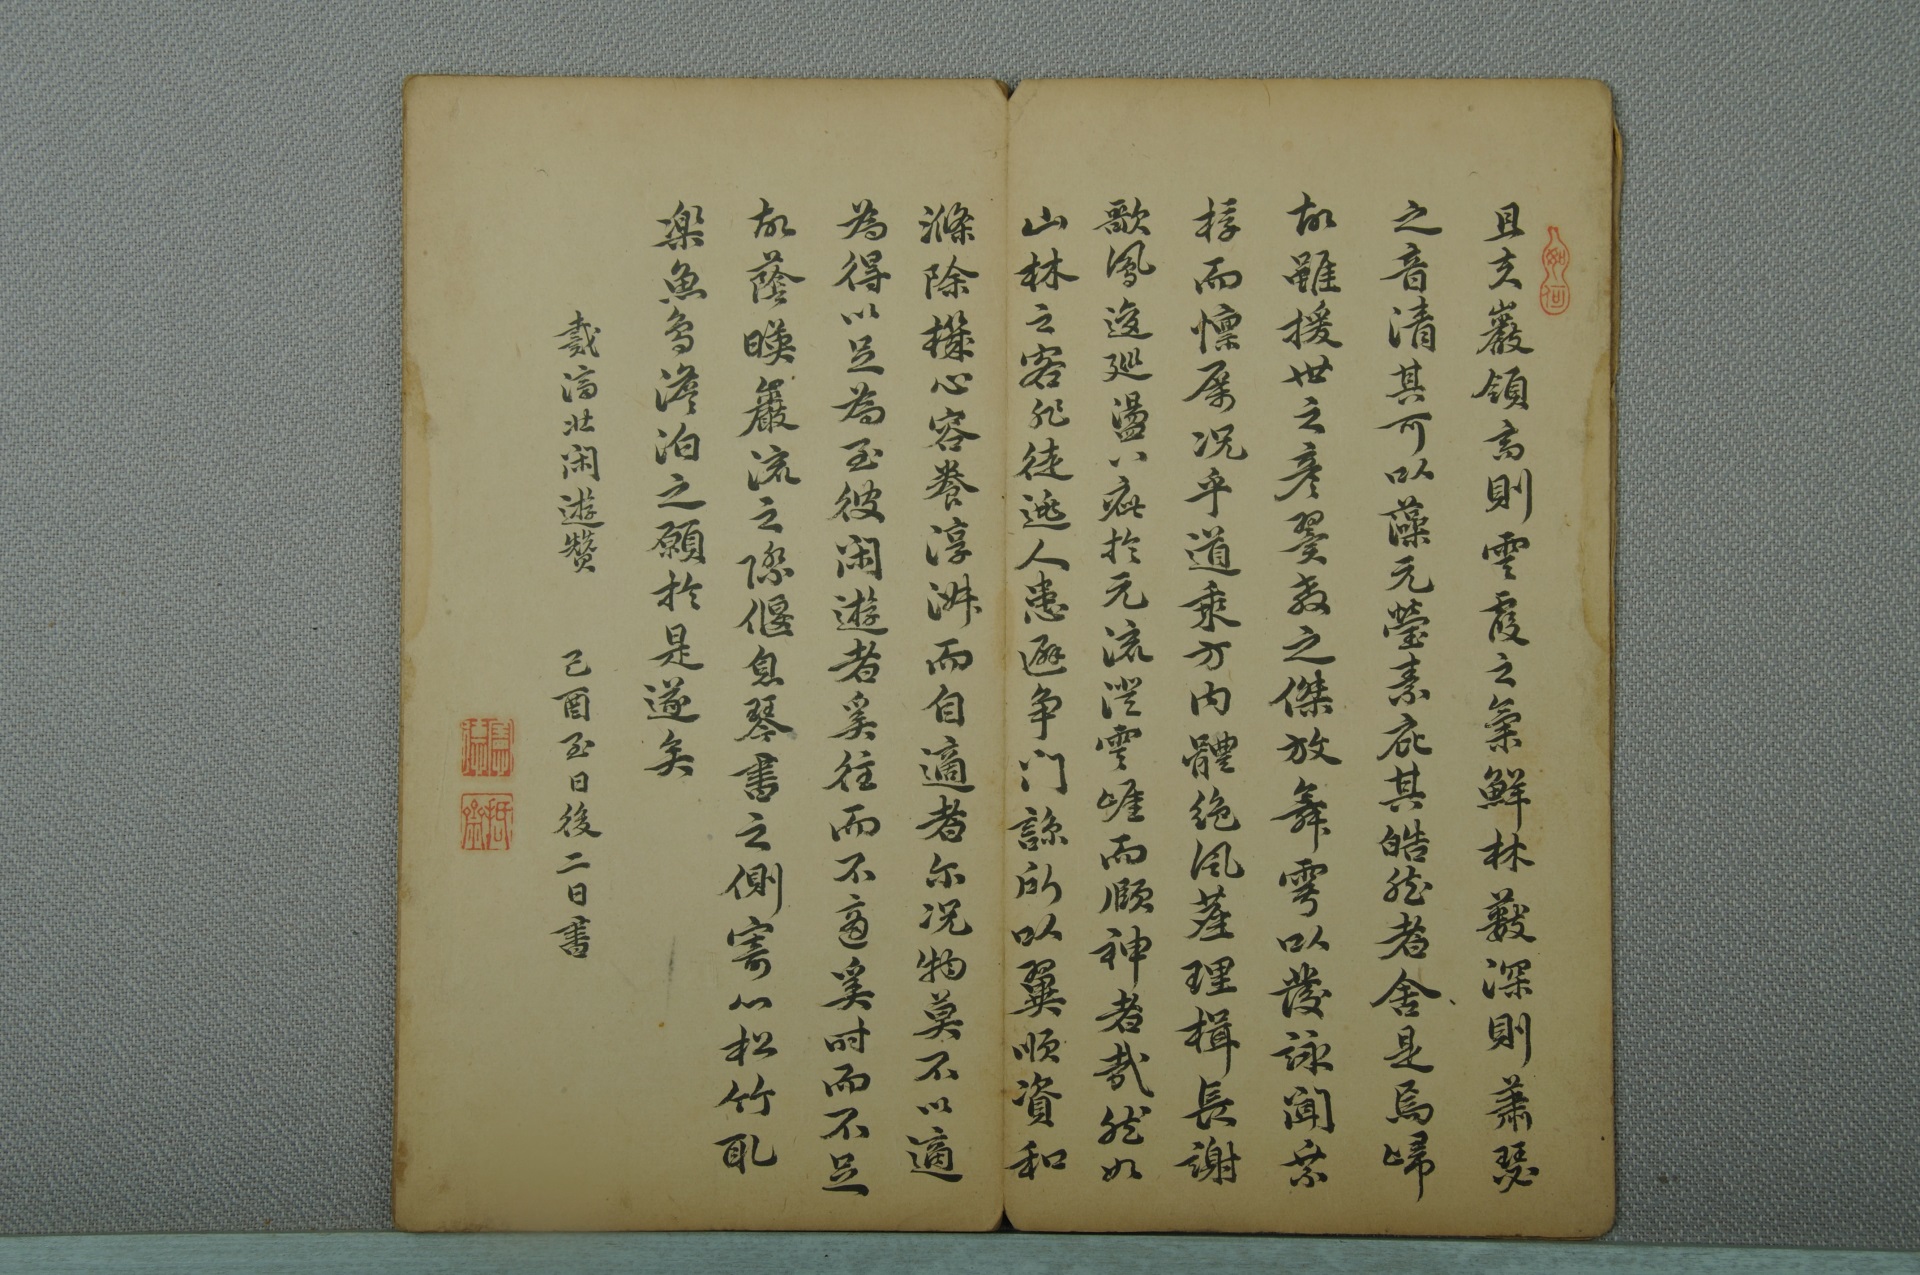 如何
且夫巖領高則雲霞之氣鮮林藪深則蕭瑟
之音清其可以藻元瑩素疵其皓然者舍是焉歸
故雖援世之彥翼教之傑放舞雩以發詠聞乘
桴而懔厲況乎道乘方內體絕風塵理楫長謝
歌鳳逡巡盪八疵於元流澄雲崖而頤神者哉然如
山林之客非徒逃人患避爭門諒所以翼順資和
滌除機心容養淳淑而自適者尔況物莫不以適
為得以足為至彼閑遊者奚往而不適奚时而不足
故蔭暎巖流之際偃息琴書之側寄心松竹取
樂魚鳥澹泊之願於是遂矣
戴濟北閑遊贊 己酉至日後二日書